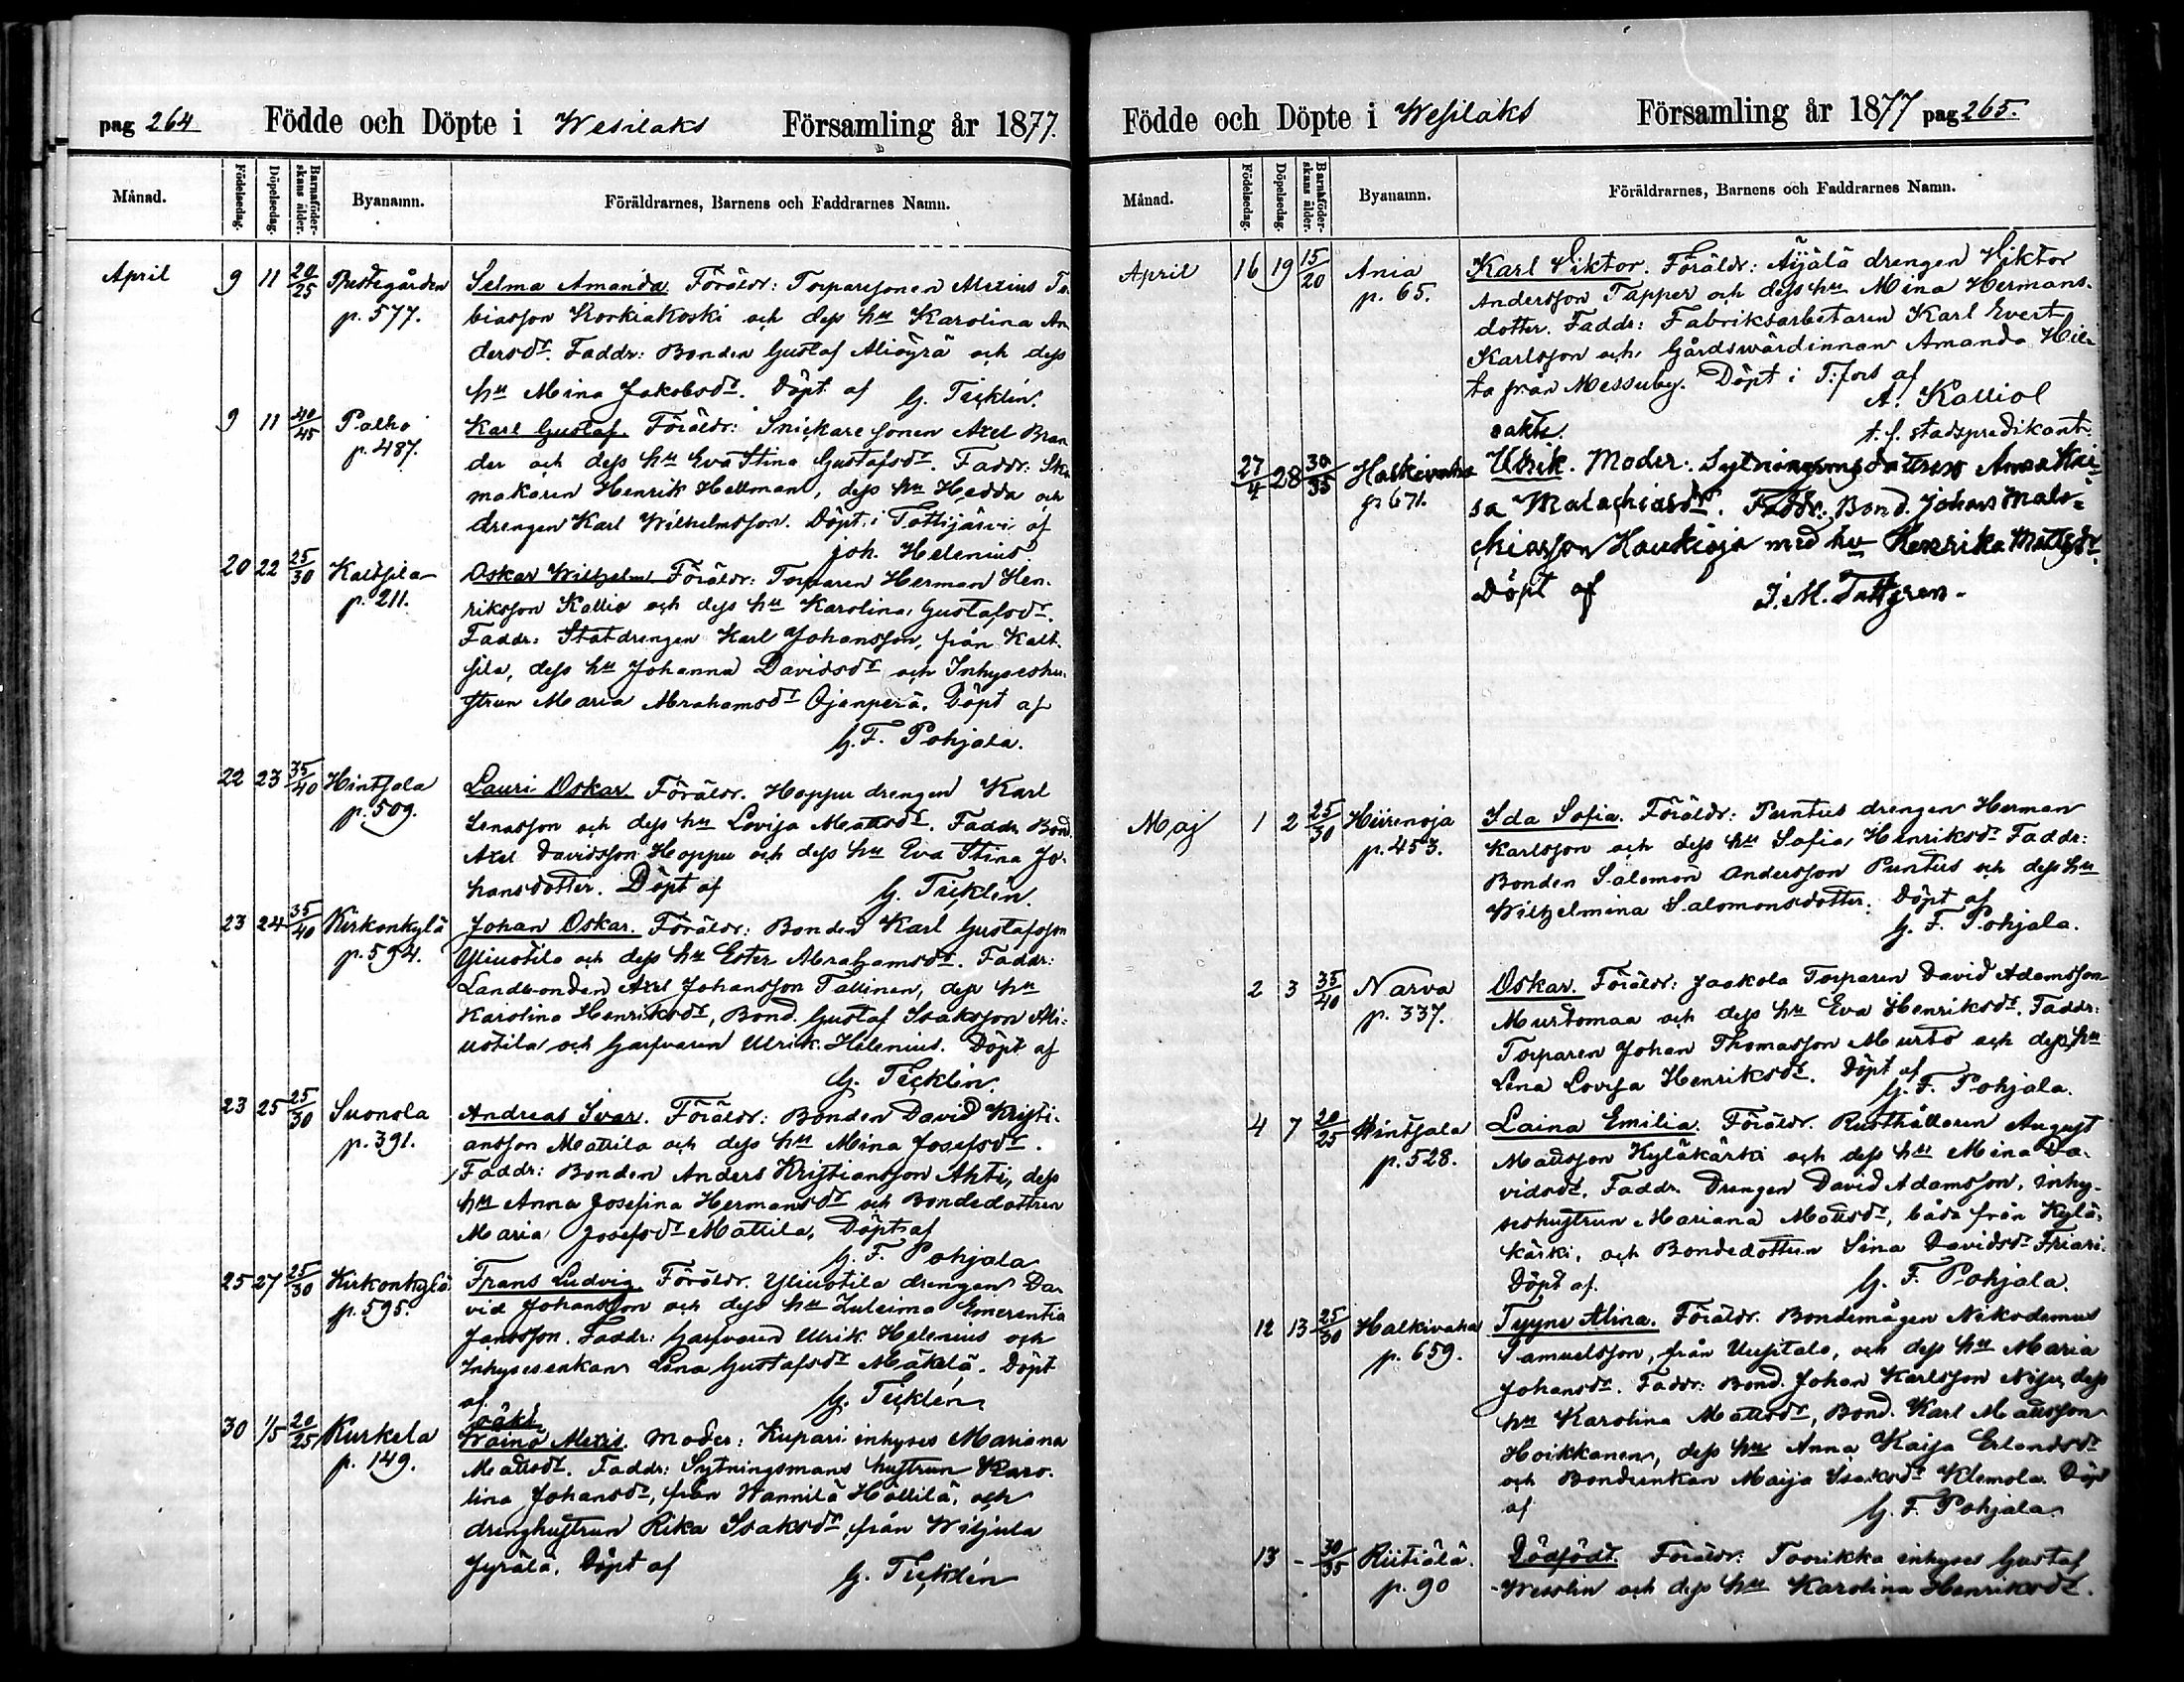 pag 264 Födde och Döpte i Wesilaks Församling år 1877.
Månad. Födelsedag. Döpelsedag. Barnaföderskans ålder. Byanamn. Föräldrarnes, Barnens och Faddrarnes Namn.
April 9 11 20/25 Prestegården Selma Amanda. Föräldr: Torparesonen Alexius To-
p. 577. biasson Korkiakoski och dess hu Karolina An
dersdr. Faddr: Bonden Gustaf Aliöyrä och dess
hu Mina Jakobsdr. Döpt af G. Ticklén.
9 11 40/45 Palho Karl Gustaf. Föräldr: Snickare sonen Axel Bran
p. 487. der och dess hu Eva Stina Gustafsdr. Faddr: Sko
makaren Henrik Hellman, dess hu Hedda och
drengen Karl Wilhelmsson. Döpt i Tottijärvi af
Joh. Helenius
20 22 25/30 Kaltsila Oskar Wilhelm Föräldr: Torparen Herman Hen-
p. 211. riksson Kallio och dess hu Karolina Gustafsdr.
Faddr: Statdrengen Karl Johansson, från Kalt-
sila, dess hu Johanna Davidsdr och Inhyseshu-
strun Maria Abrahamsdr Ojanperä. Döpt af
G. F. Pohjala.
22 23 35/40 Hintsala Lauri Oskar. Föräldr. Hoppu drengen Karl
p. 509. Enasson och dess hu Lovisa Mattsdr. Faddr Bond.
Axel Davidsson Hoppu och dess hu Eva Stina Jo-
hansdotter. Döpt af G. Ticklén.
23 24 35/40 Kirkonkylä Johan Oskar. Föräldr: Bonden Karl Gustafsson
p. 594. Yliuotila och dess hu Ester Abrahamsdr. Faddr:
Landbonden Axel Johansson Tallinen, dess hu
Karolina Henriksdr, Bond. Gustaf Isaksson Ali-
uotila och Garfvaren Ulrik Helenius. Döpt af
G. Ticklén.
23 25 25/30 Suonola Andreas Ivar. Föräldr: Bonden David Kristi-
p. 391. ansson Mattila och dess hu Mina Josefsdr.
Faddr: Bonden Anders Kristiansson Ahti, dess
hu Anna Josefina Hermansdr och Bondedottren
Maria Josefsdr Mattila. Döpt af
G. F. Pohjala
25 27 25/30 Kirkonkylä Frans Ludvig Föräldr. Yliuotila drengen Da-
p. 595. vid Johansson och dess hu Zuleima Emerentia
Jansson. Faddr: Garfvaren Ulrik Helenius och
Inhysesenkan Lena Gustafsdr Mäkelä. Döpt
af G. Ticklén.
oäkt
30 1/5 20/25 Kurkela Wäinö Alexis. Moder: Kupari inhyses Mariana
p. 149. Mattsdr. Faddr: Sytningsmans hustrun Karo-
lina Johansdr, från Hannila Hollilä, och
drenghustrun Rika Isaksdr från Wiljula
Jyrälä. Döpt af G. Ticklén
Födde och Döpte i Wesilaks Församling år 1877 pag 265.
Månad. Födelsedag. Döpelsedag. Barnaföderskans ålder. Byanamn. Föräldrarnes, Barnens och Faddrarnes Namn.
April 16 19 15/20 Ania Karl Viktor. Föräldr: Äijälä drengen Viktor
p. 65. Andersson Tapper och dess hu Mina Hermans-
dotter. Faddr: Fabriksarbetaren Karl Evert
Karlsson och Gårdswärdinnan Amanda Hil-
ta från Messuby. Döpt i T:fors af
A. Kalliol
oäkta. t. f. stadspredikant.
27/4 28 30/35 Halkivaha Ulrik. Moder: Sytningsmgdottren Anna Kai-
p. 671. sa Malachiasdr. Faddr: Bond. Johan Mala-
chiasson Haukioja med hu Henrika Mattsdr.
Döpt af J. M. Tallgren.
Maj 1 2 25/30 Hiirenoja Ida Sofia. Föräldr: Puntus drengen Herman
p. 453. Karlsson och dess hu Sofia Henriksdr Faddr:
Bonden Salomon Andersson Puntus och dess hu
Wilhelmina Salomonsdotter. Döpt af
G. F. Pohjala.
2 3 35/40 Narva Oskar. Föräldr: Jaakola Torparen David Adamsson
p. 337. Murtomaa och dess hu Eva Henriksdr. Faddr:
Torparen Johan Thomasson Murto och dess hu
Lena Lovisa Henriksdr. Döpt af
G. F. Pohjala.
4 7 20/25 Hintsala Laina Emilia. Föräldr. Rusthållaren August
p. 528. Mattsson Kyläkärki och dess hu Mina Da-
vidsdr. Faddr. Drengen David Adamsson, inhy-
seshustrun Mariana Mattsdr, båda från Kylä-
kärki, och Bondedottren Sina Davidsdr Friari.
Döpt af. G. F. Pohjala.
12 13 25/30 Halkivaha Tyyne Alina. Föräldr. Bondemågen Nikodemus
p. 659. Samuelsson, från Uusitalo, och dess hu Maria
Johansdr. Faddr: Bond. Johan Karlsson Niju, dess
hu Karolina Mattsdr, Bond. Karl Mattsson
Hoikkanen, dess hu Anna Kaisa Erlandsdr
och Bondeenkan Maija Isaksdr Klemola. Döpt
af G. F. Pohjala.
13 - 30/35 Riitiälä. Dödfödt. Föräldr: Toorikka inhyses Gustaf
p. 90 Wesslin och dess hu Karolina Henriksdr.